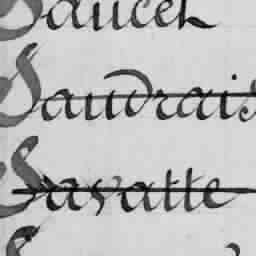 Saucet
Saudrais
Savatte